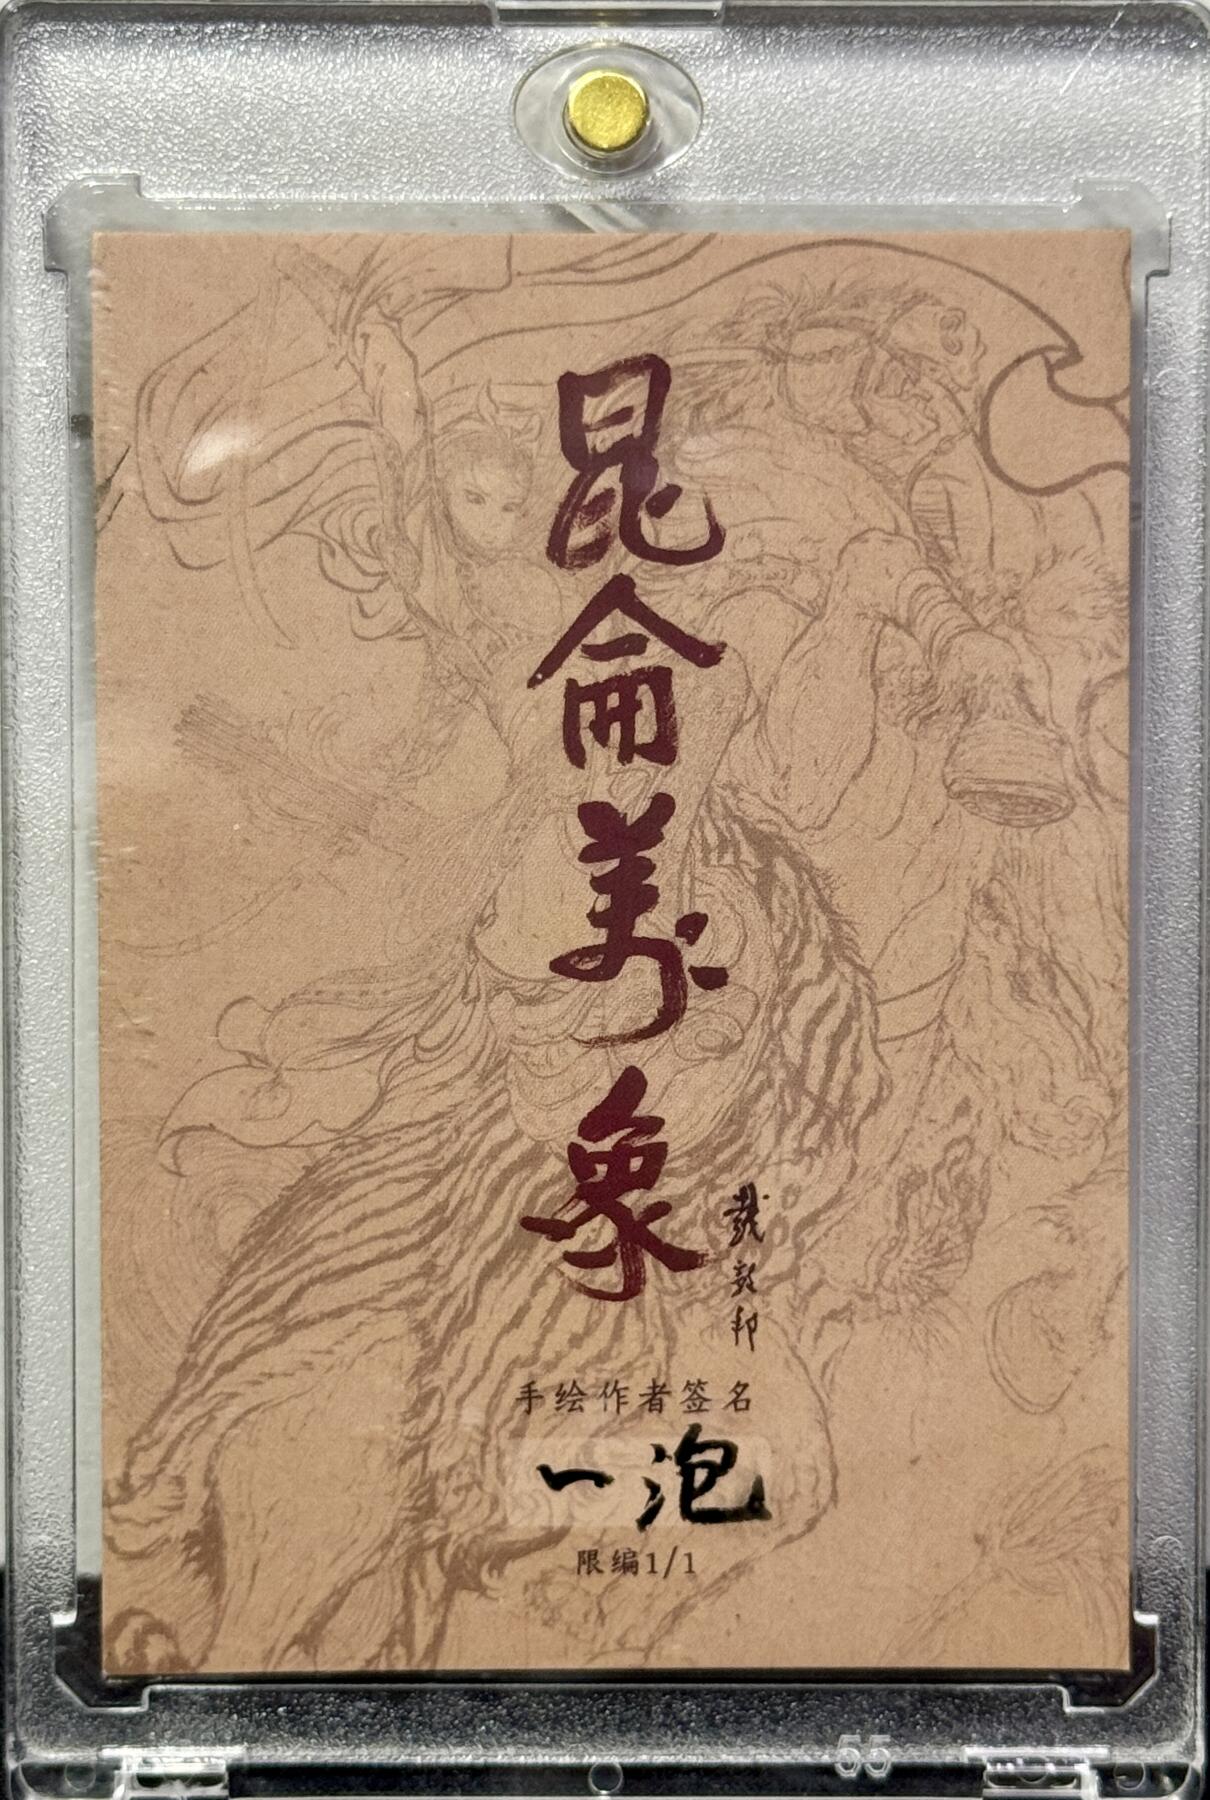 昆侖萬象
戴敦邦
手绘作者签名
一泡
限编1/1
55